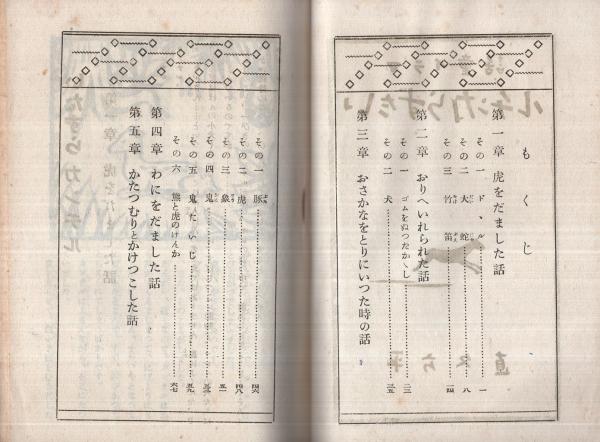 もくじ
第一章 虎をだました話
その一 ドヽル……一
その二 大蛇……八
その三 竹笛……一四
第二章 おりへいれられた話
その一 ゴムをぬつたかゝし……二三
その二 犬……三五
第三章 おさかなをとりにいつた時の話
その一 豚……四六
その二 虎……四八
その三 象……五一
その四 鬼
その五 鬼たいじ……五九
その六 熊と虎のけんか……六七
第四章 わにをだました話
第五章 かたつむりとかけつこした話